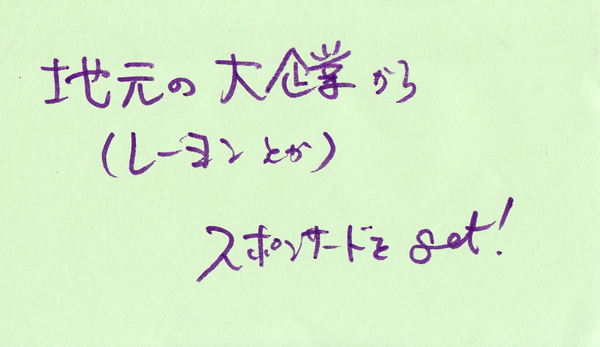 地元の大企業から
(レーヨンとか)
スポンサードを get!